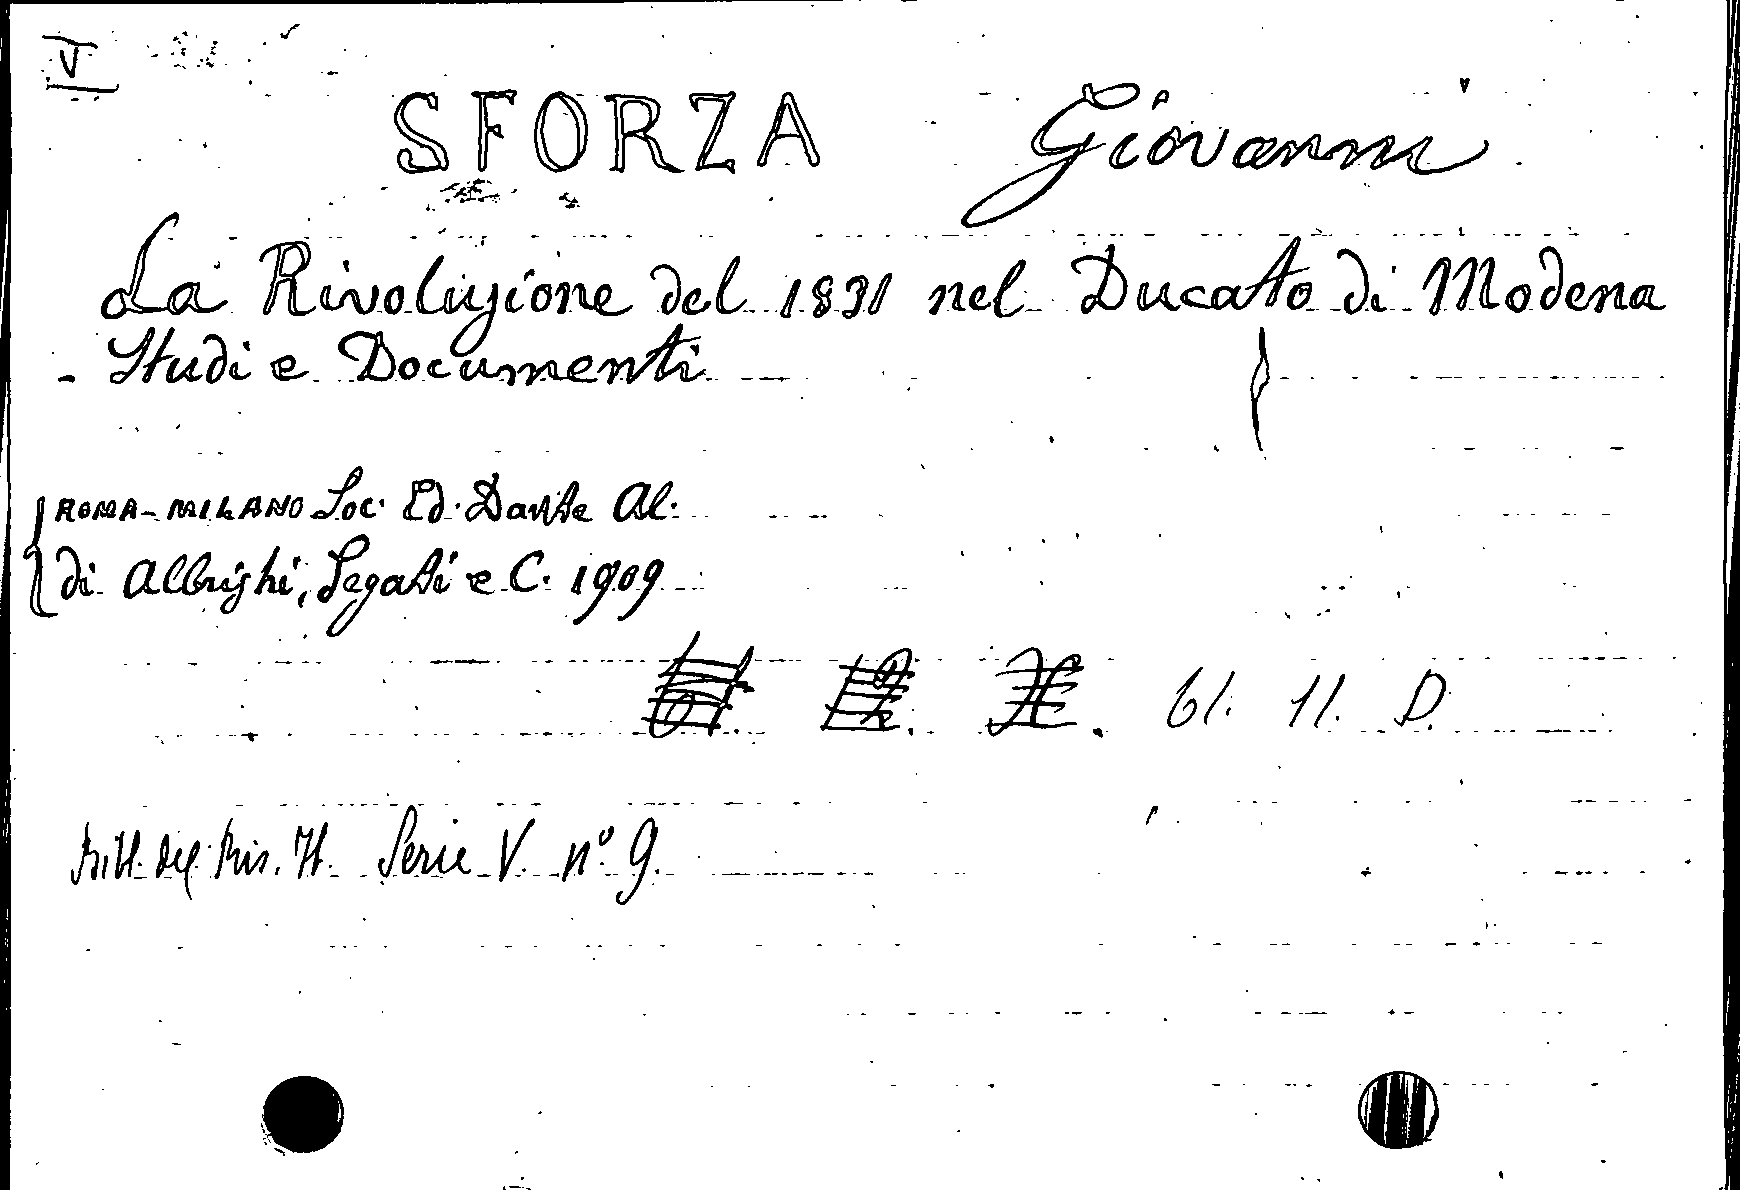 V
SFORZA Giovanni
La Rivoluzione del 1831 nel Ducato di Modena
- Studi e Documenti
ROMA-MILANO Soc. Ed. Dante Al.
di Albrighi, Segati e C. 1909
61. 11. D.
Bibl. del Ris. It. Serie V. n° 9.